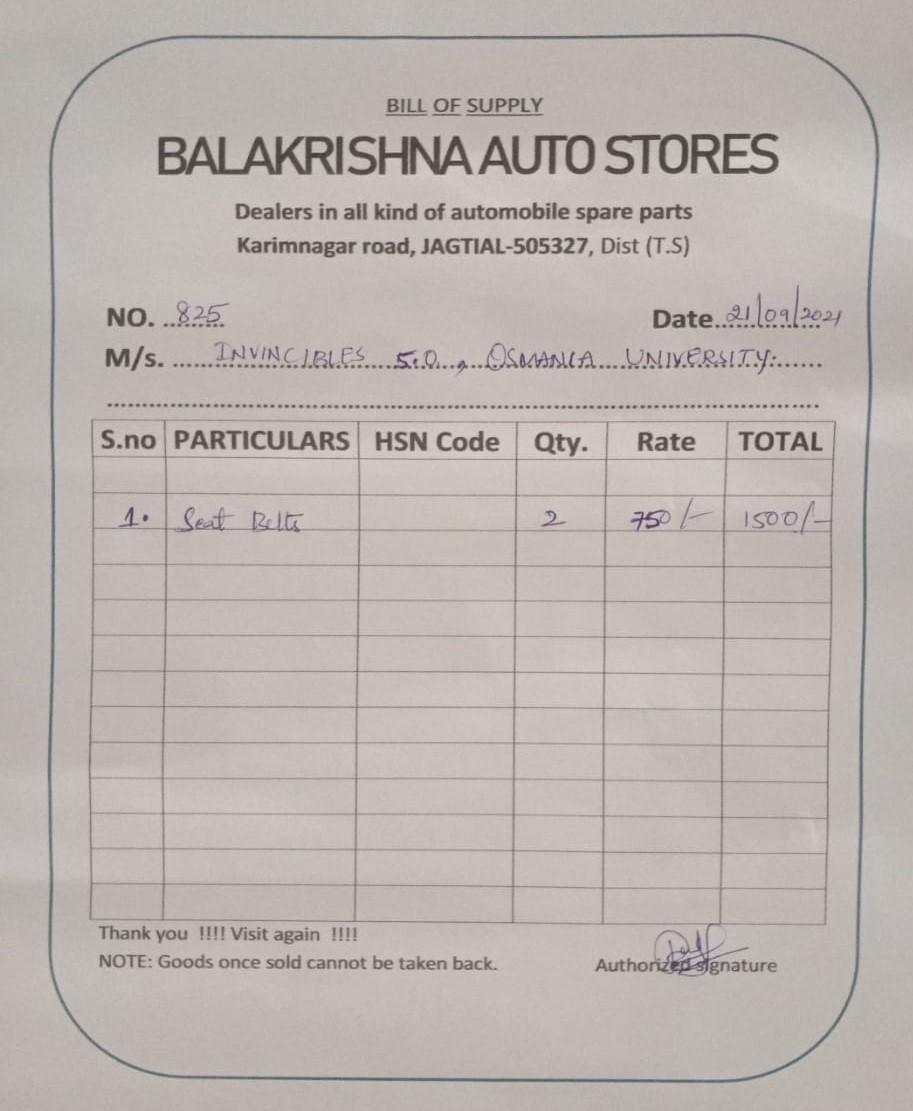 BILL OF SUPPLY
BALAKRISHNA AUTO STORES
Dealers in all kind of automobile spare parts
Karimnagar road, JAGTIAL-505327, Dist (T.S)
NO. 825 Date 21/09/2021
M/s. INVINCIBLES 5.0, OSMANIA UNIVERSITY.
S.no PARTICULARS HSN Code Qty. Rate TOTAL
1. Seat Belts 2 750/- 1500/-
Thank you !!!! Visit again !!!!
NOTE: Goods once sold cannot be taken back. Authorized signature